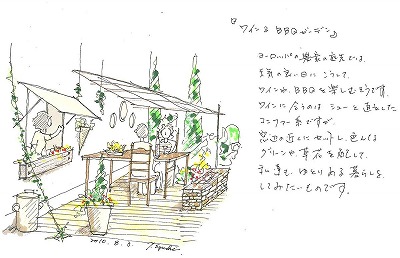 『ワイン&BBQガーデン』
ヨーロッパの農家の庭先では、
天気の良い日に こうして、
ワインや、BBQを楽しむそうです。
ワインに合うのは シュっと直立した
コニファー系ですが、
窓辺の近くにセットし、色んな
グリーンや、草花を配して、
私達も、ゆとりある暮らしを
してみたいものです。
2010. 8. 8.